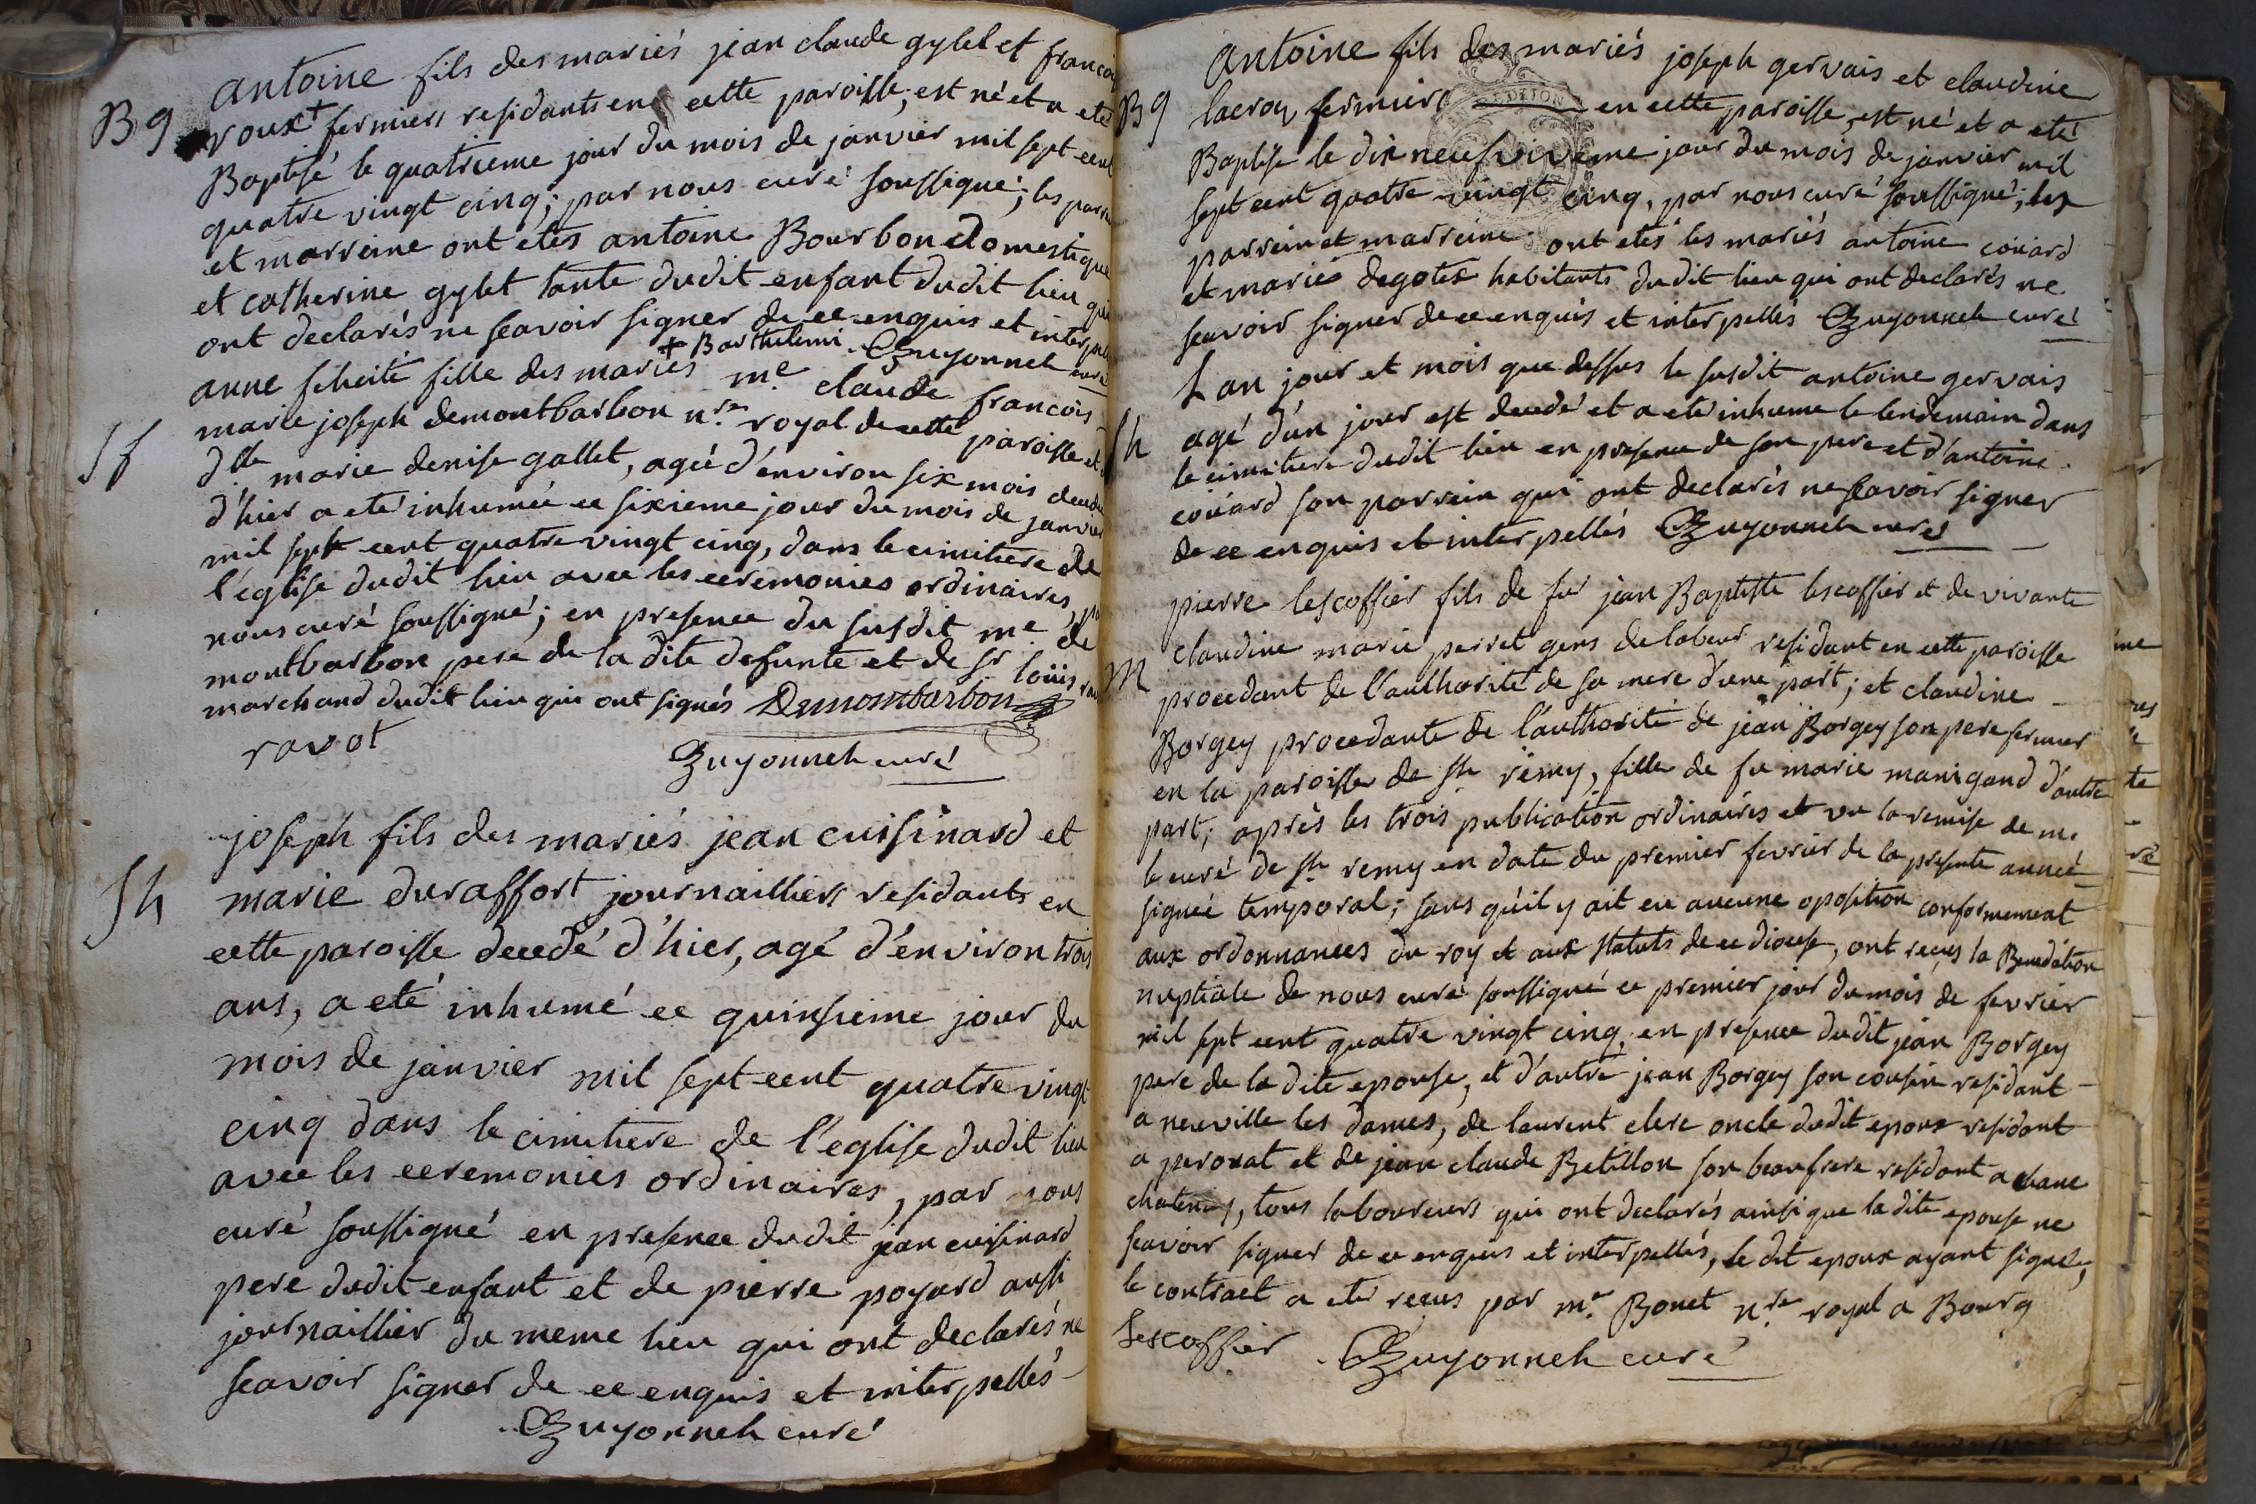 Bg
antoine fils des mariés jean claude gylet et françoi
roux+ fermiers residants en cette paroisse, est né et a eté
Baptisé le quatrieme jour du mois de janvier mil sept cent
quatre vingt cinq; par nous curé soussigné; les parrai
et marreine ont etés antoine Bourbon domestique
et catherine gylet tante dudit enfant dudit lieu qui
ont declarés ne scavoir signer de ce enquis et interpel
+ Barthelemi Guyonneh curé
Sf
anne felicité fille des mariés me. claude françois
marie joseph demontbarbon nre. royal de cette paroisse et
dlle marie denise gallet, agée d'environ six mois decedé
d'hier a eté inhumée ce sixieme jour du mois de janvier
mil sept cent quatre vingt cinq, dans le cimitiere de
l'eglise dudit lieu avec les ceremonies ordinaires, par
nous curé soussigné; en presence du susdit me. de
montbarbon pere de la dite defunte et de sr loüis rav
marchand dudit lieu qui ont signés Demontbarbon
ravot
Guyonneh curé
Sh
joseph fils des mariés jean cuisinard et
marie duraffort journailliers residants en
cette paroisse decedé d'hier, agé d'environ trois
ans, a eté inhumé ce quinsieme jour du
mois de janvier mil sept cent quatre vingt
cinq dans le cimitiere de l'eglise dudit lieu
avec les ceremonies ordinaires, par nous
curé soussigné en presence dudit jean cuisinard
pere dudit enfant et de pierre poyard aussi
journaillier du meme lieu qui ont declarés ne
scavoir signer de ce enquis et interpellés
Guyonneh curé
Bg
antoine fils des mariés joseph gervais et claudine
lacroy fermiers en cette paroisse, est né et a eté
Baptisé le dix neufvieme jour du mois de janvier mil
sept cent quatre vingt cinq, par nous curé soussigné; les
parrein et marreine ont etés les mariés antoine coüard
et marie degotex habitants dudit lieu qui ont declarés ne
scavoir signer de ce enquis et interpellés Guyonneh curé
Sh
L an jour et mois que dessus le susdit antoine gervais
agé d'un jour est decedé et a eté inhumé le lendemain dans
le cimitiere dudit lieu en presence de son pere et d'antoine
coüard son parrein qui ont declarés ne scavoir signer
de ce enquis et interpellés Guyonneh curé
M
pierre lescoffier fils de feu jean Baptiste lescoffier et de vivante
claudine marie perret gens de labeur residant en cette paroisse
procedant de l'authorité de sa mere d'une part; et claudine
Borgey procedante de l'authorité de jean Borgey son pere fermier
en la paroisse de st remy, fille de fu marie manigand d'autre
part; après les trois publication ordinaires et vu la remise de mr
le curé de st remy en date du premier fevrier de la presente année
signée temporal; sans qu'il y ait eu aucune oposition conformement
aux ordonnances du roy et aux statuts de ce diocese, ont reçus la Benediction
nuptiale de nous curé soussigné ce premier jour du mois de fevrier
mil sept cent quatre vingt cinq, en presence dudit jean Borgey
pere de la dite epouse, et d'autre jean Borgey son cousin residant
a neuville les dames, de laurent clerc oncle dudit epoux residant
a peronat et de jean claude Betillon son beaufrere residant a vane
chateney, tous laboureurs qui ont declarés ainsi que la dite epouse ne
scavoir signer de ce enquis et interpellés, le dit epoux ayant signé;
le contract a eté reçus par me. Bonet nre. royal a Bourg
Lescoffier Guyonneh curé